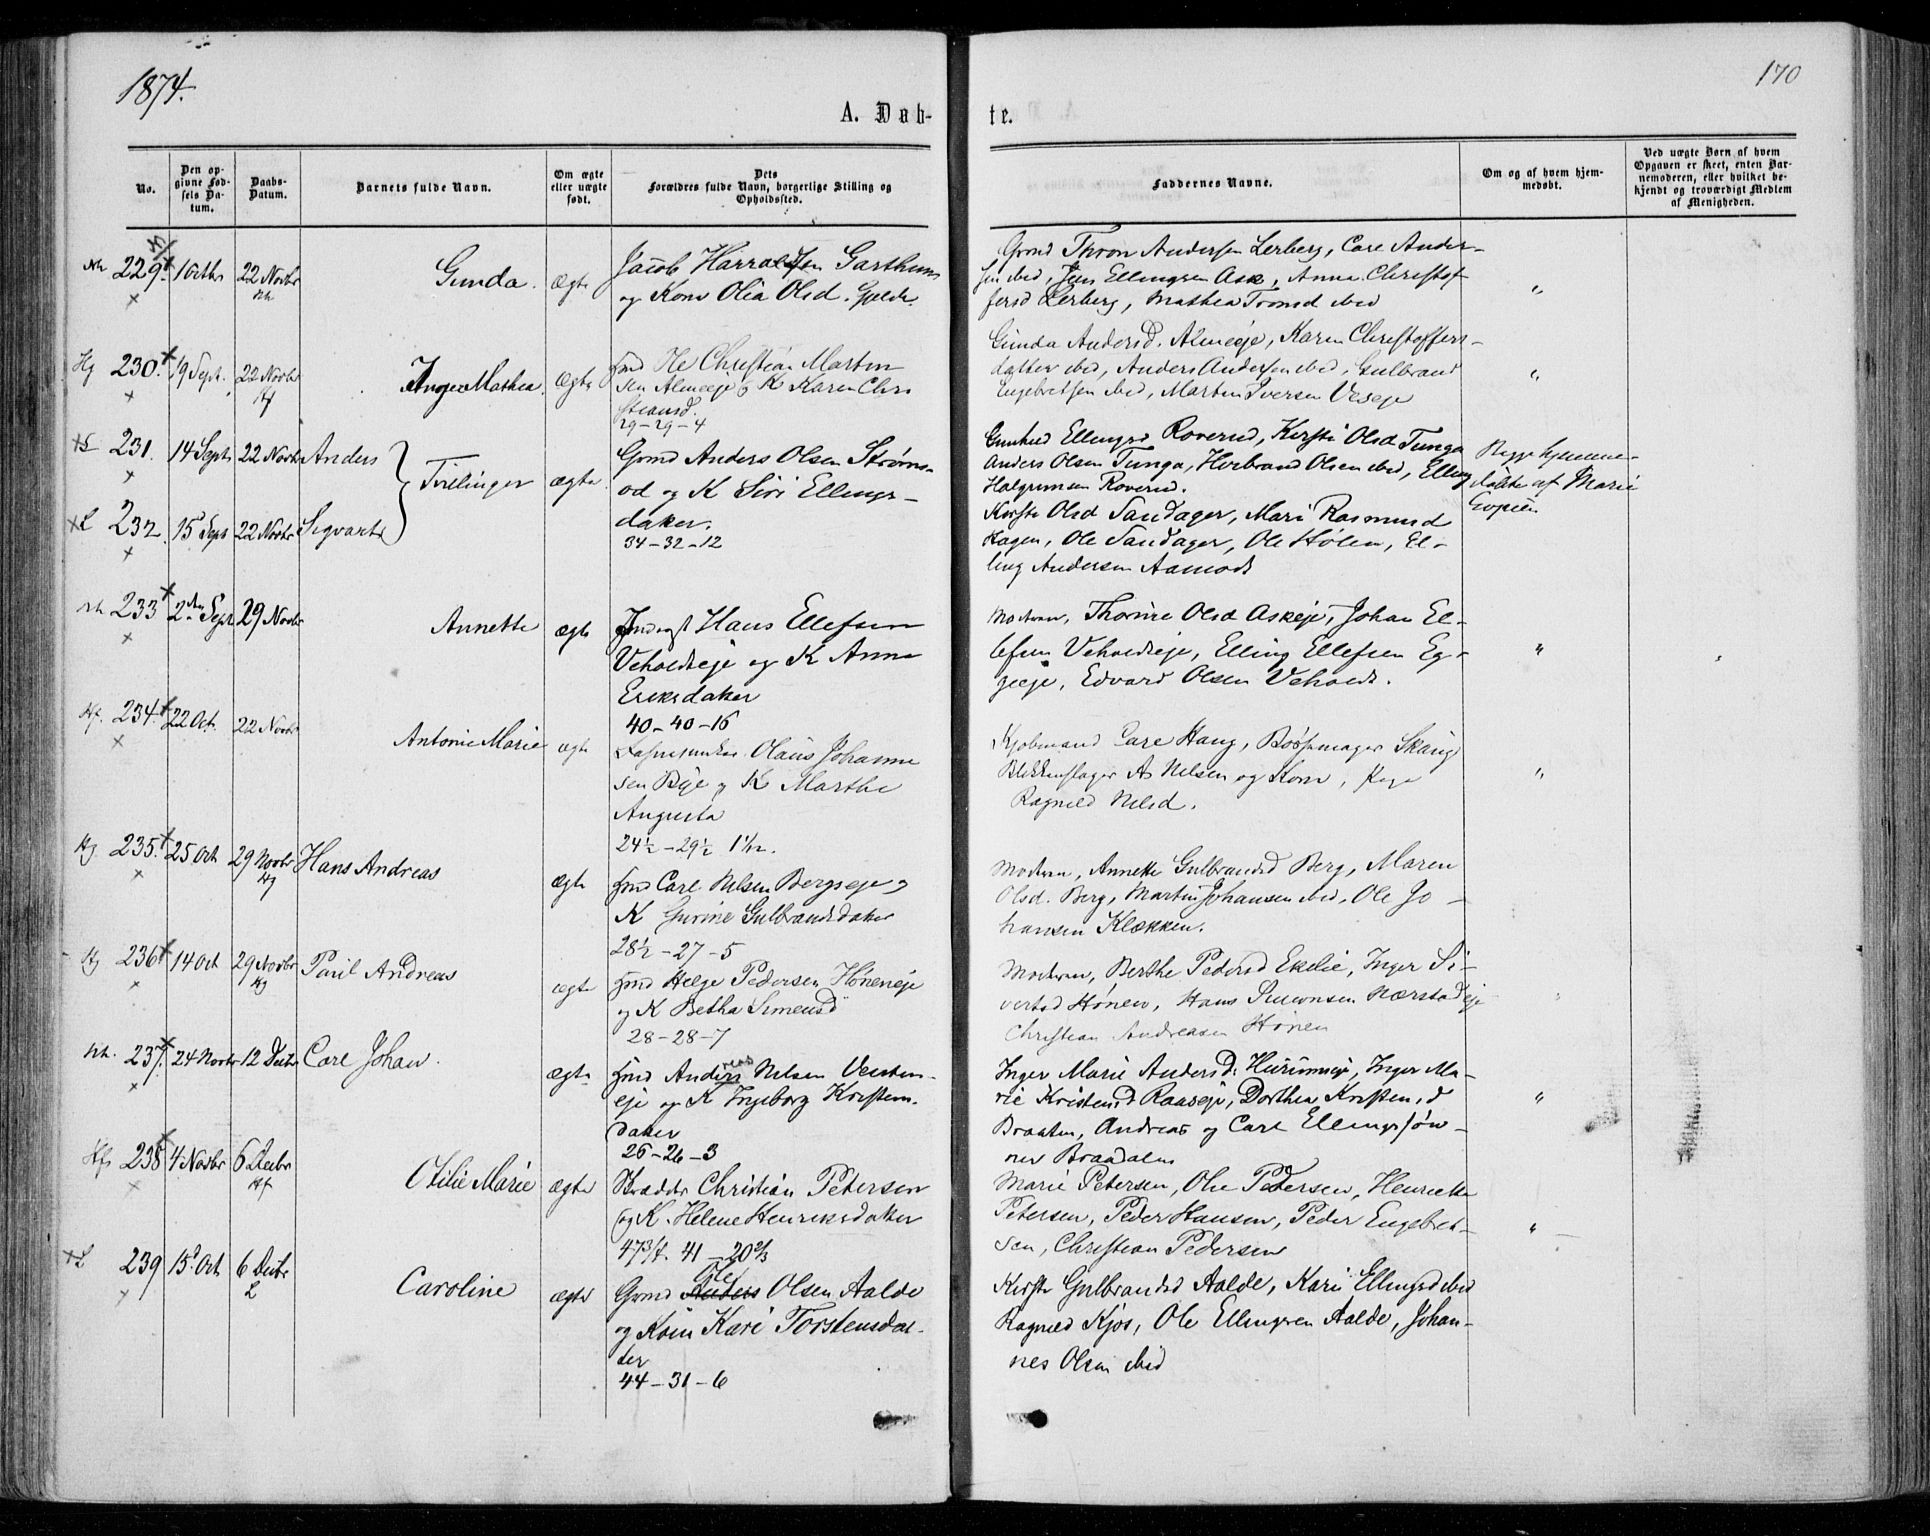 1874.
170
A. Døb-
te.
No.
Den op-
givne Fød-
sels Da-
tum.
Daabs-
Datum.
Barnets fulde Navn.
Om ægte
eller uægte
født.
Dets
Forældres fulde Navn, borgerlige Stilling og
Opholdssted.
Faddernes Navne.
Om og af hvem hjem-
medøbt.
Ved uægte Børn af hvem
Opgaven er skeet, enten Bar-
nemoderen, eller hvilket be-
kjendt og troværdigt Medlem
af Menigheden.
229. 1 Octbr 22 Novbr Gunda. ægte
Jacob Harraldsen
og Kone Olia Olsd.
Gmd Thron Andersen Lerberg, Carl Ander-
sen ibid, Jens Ellingsen Ask, Anna Christof
fersd Lerberg, Mathea Tronsd ibid
"
Hg 230. 19 Sept. 22 Novbr Inger Mathea. ægte
Hmd Ole Christian Martin
sen Almeeje og K Karen Chri
stiansd.
29-29-4
Gunda Andersd. Almeeje, Karen Christoffers-
datter ibid, Anders Andersen ibid, Gulbrand
Engebretsen ibid, Martin Iversen Veseje
"
231. 14 Sept 22 Novbr Anders
Tvillinger ægte
232. 15 Sept 22 Novbr Sigvart
Gmd Anders Olsen Strøms-
od og K Siri Ellings-
datter.
34-32-12
Gunhild Ellingsd Roverud, Kirsti Olsd Tunga
Anders Olsen Tunga, Herbrand Olsen ibid, Elling
Halgrimsen Roverud.
Kirsti Olsd Sandager, Mari Rasmusd
Hagen, Ole Sandager, Ole Hølen, El-
ling Andersen Aamodt
Begge hjemme-
døbte af Marie
233 2den Sept 29 Novbr Annette ægte
Inderst Hans Ellefsen
Veholdteje og K Anne
Eriksdatter
40-40-16
Modren, Thorine Olsd Askeje, Johan El-
lefsen Veholdteje, Elling Ellefsen Eg-
geeje, Edvard Olsen Veholdt.
"
Hf. 234. 22 Oct. 22 Novbr Antonie Marie ægte
Olaus Johanne
sen Bye og K Marthe
Augusta
24½-29½ 1 1/12.
Kjøbmand Carl Haug, Bøssemager Skaug
Blikkenslager A Nilsen og Kone, Pige
Ragnild Nilsd.
"
Hg 235. 25 Oct 29 Novbr Hans Andreas
Hg
ægte
Hmd Carl Nilsen Bergseje og
K Gurine Gulbrandsdatter
28½-27-5
Modren, Annette Gulbrandsd Berg, Maren
Olsd. Berg, Martin Johansen ibid, Ole Jo-
hansen Klækken.
Hg 236 14 Oct 29 Novbr Paul Andreas
Hg
ægte
Hmd Helge Pedersen Høneneje
og K Betha Simensd
28-28-7
Modren, Berthe Pedersd Ekelie, Inger Si-
vertsd Hønen, Hans Simonsen Nærstadeje
Christian Andreasen Hønen
"
Nh. 237. 24 Novbr 12 Decbr Carl Johan. ægte
Hmd Andreas Nilsen Vesten-
eje og K Ingeborg Kristens-
datter
26-26-3
Inger Marie Andersd. Hurumeje, Inger Ma-
rie Kristensd Raaseje, Dorthea Kristensd
Braaten, Andreas og Carl Ellingssøn-
ner Braadalen
"
Hf 238 4 Novbr 6 Decbr Otilie Marie ægte
Hf
Skrædder Christian Petersen
og K. Helene Henriksdatter
47 3/4. 41-20 2/3
Marie Petersen, Ole Pedersen, Henriette
Petersen, Peder Hansen, Peder Engebret-
sen, Christian Pedersen
"
239 15. Oct 6 Decbr Caroline ægte
L
Gmd Anders Ole Olsen Aalde
og Kone Kari Torstensdat-
ter
44-31-6
Kirsti Gulbrandsd Aalde, Kari Ellingsd ibid
Ragnild Kjos, Ole Ellingsen Aalde, Johan-
nes Olsen ibid